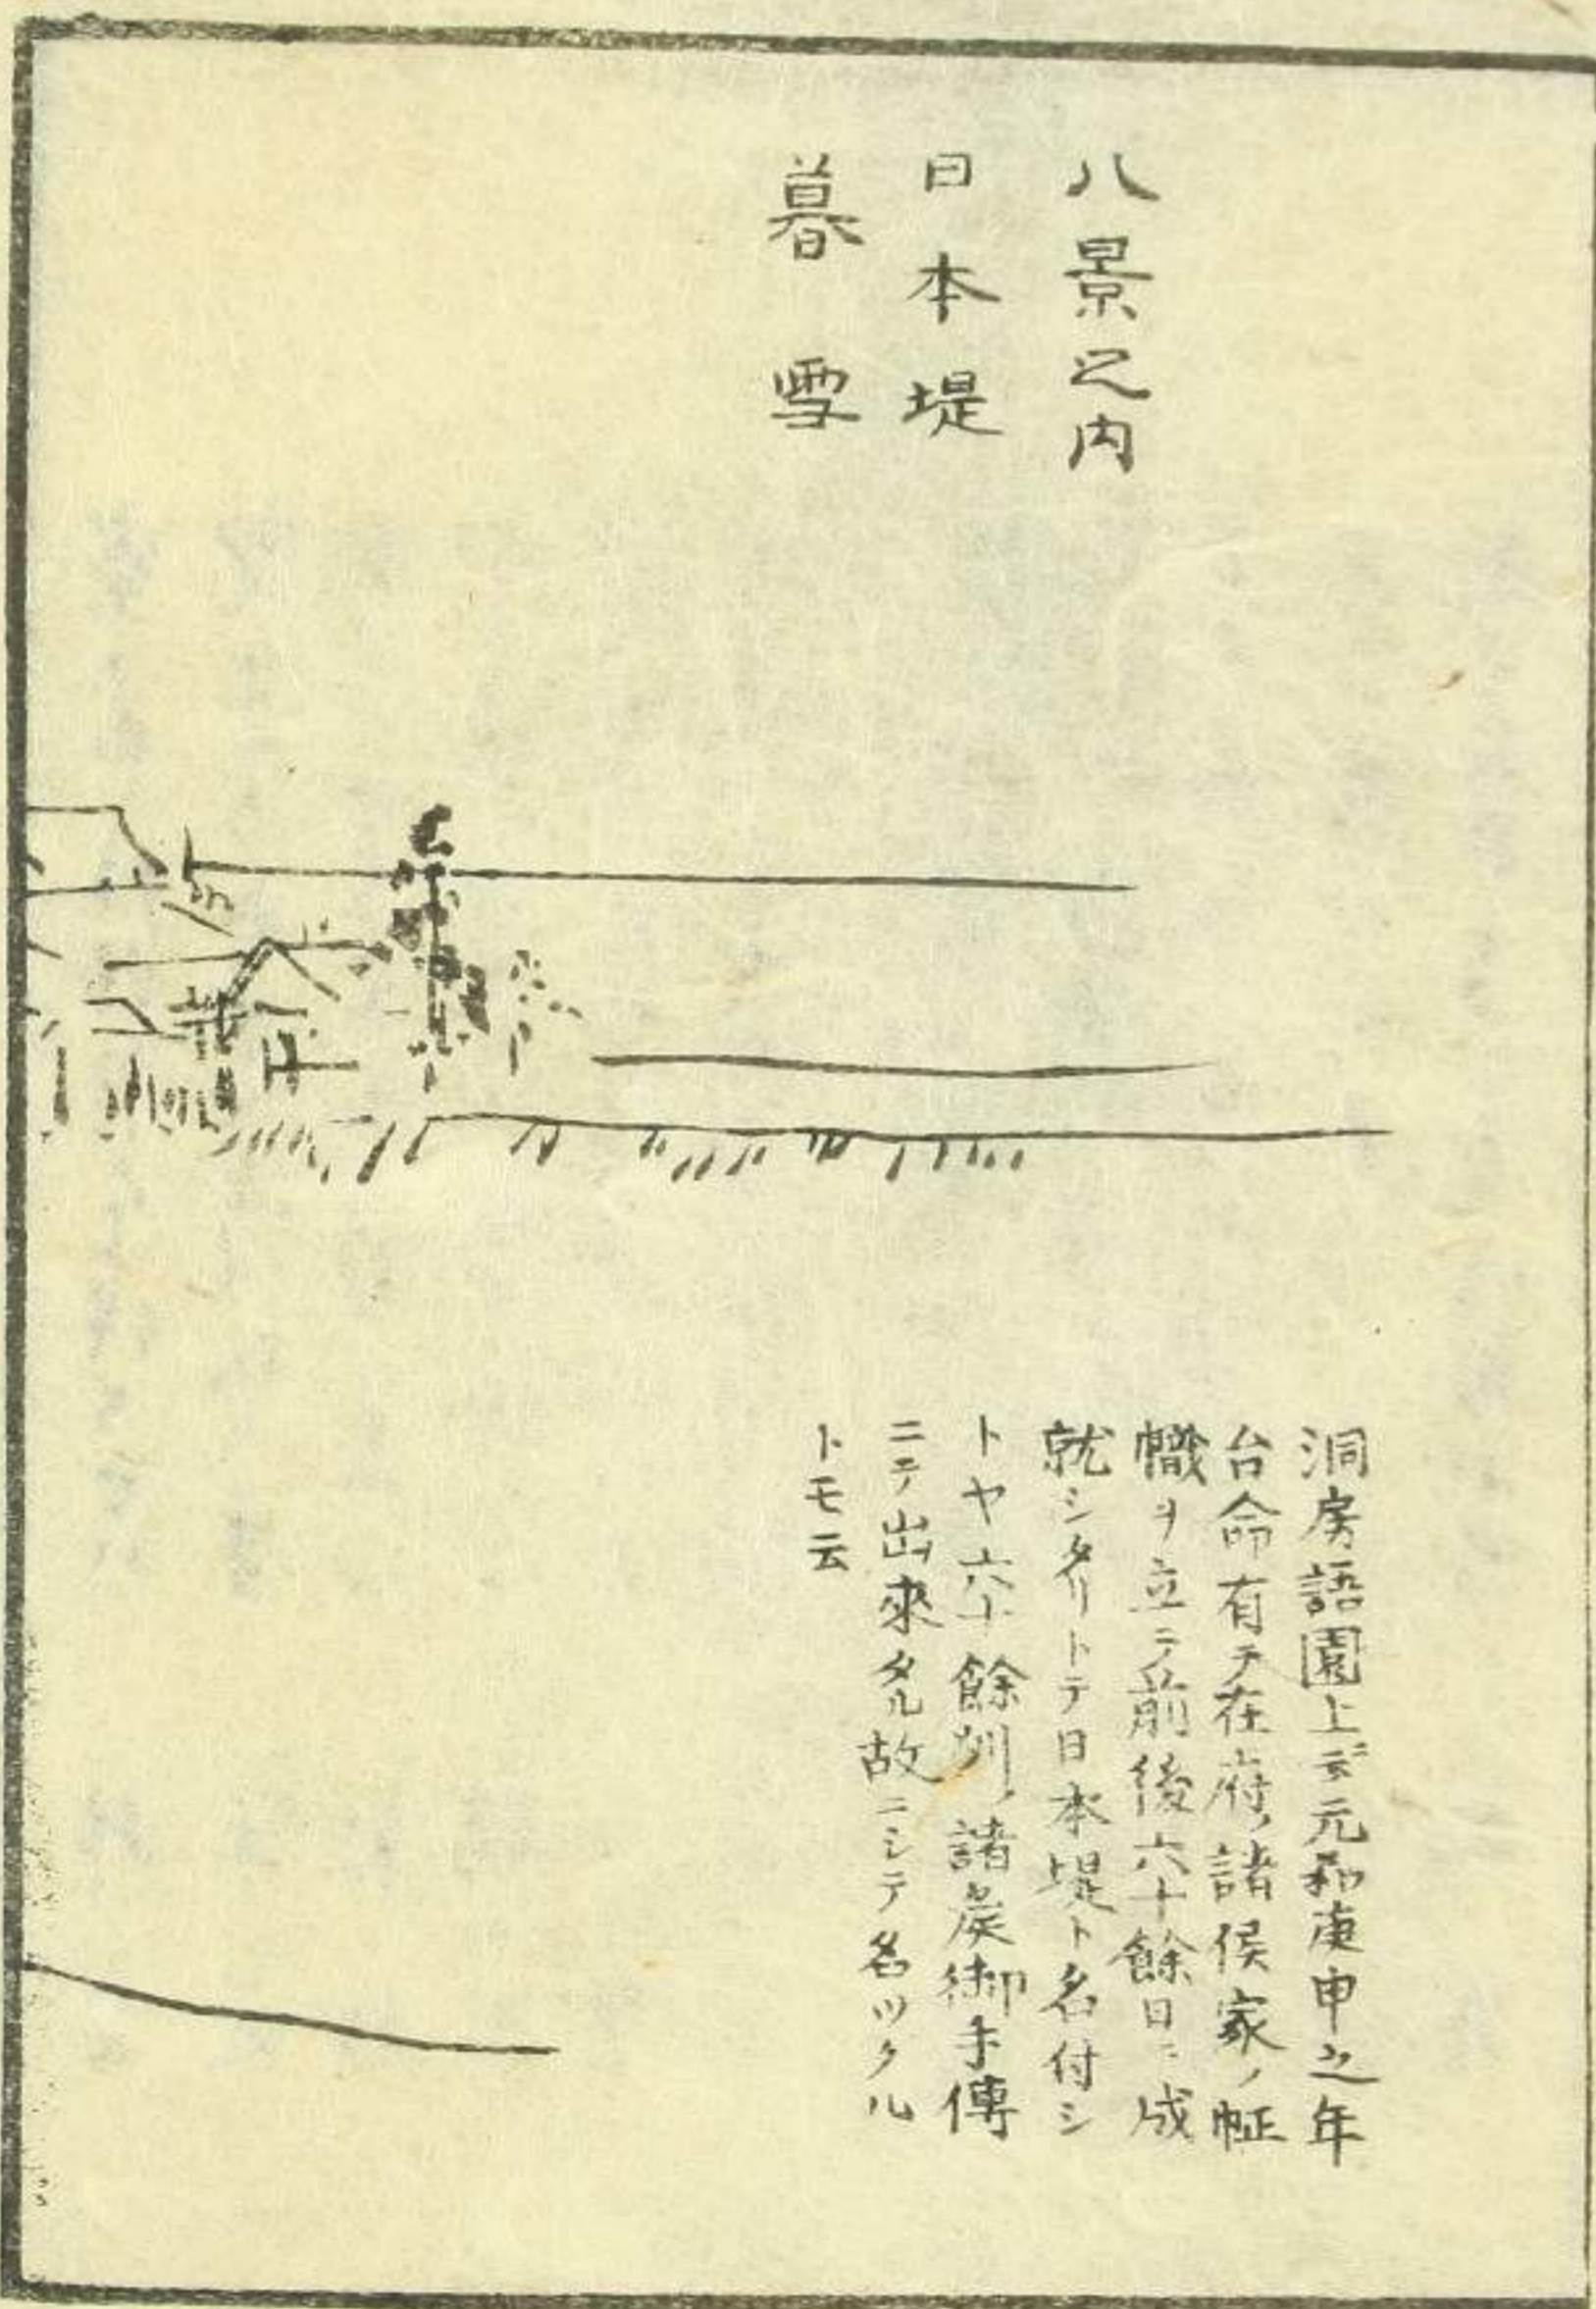 八景之内
日本堤
暮雪
洞房語園上ニ云元和庚申之年
台命有テ在府ノ諸侯家ノ幟
幟ヲ立テ前後六十餘日ニ成
就シタリトテ日本堤ト名付シ
トヤ六十餘州ノ諸矦御手傳
ニテ出來タル故ニシテ名ツクル
トモ云